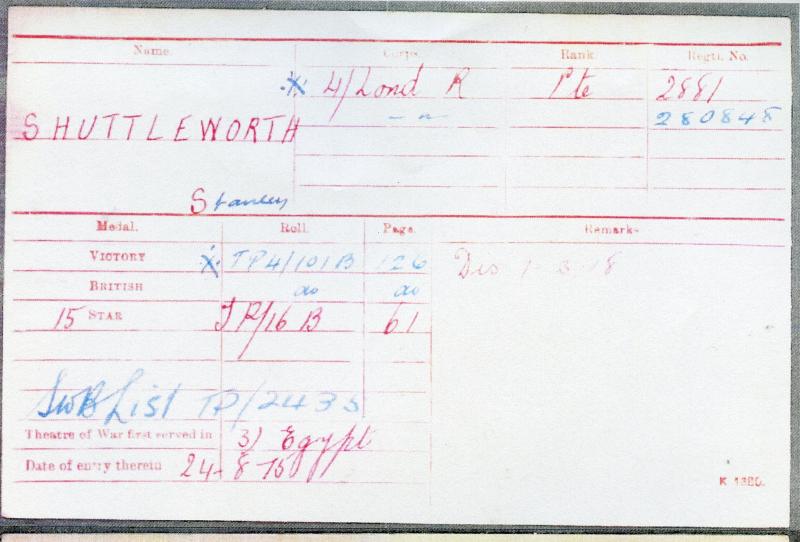 Name. Corps. Rank. Regtl. No.
4/Lond R Pte 2881
SHUTTLEWORTH - " - 280848
Stanley
Medal. Roll. Page. Remarks
VICTORY TP4/101B 126 Dis 1-3-18
BRITISH do do
15 STAR TP/16 B 61
SWB List TP/2435
Theatre of War first served in 3) Egypt
Date of entry therein 24-8-15
K 1380.